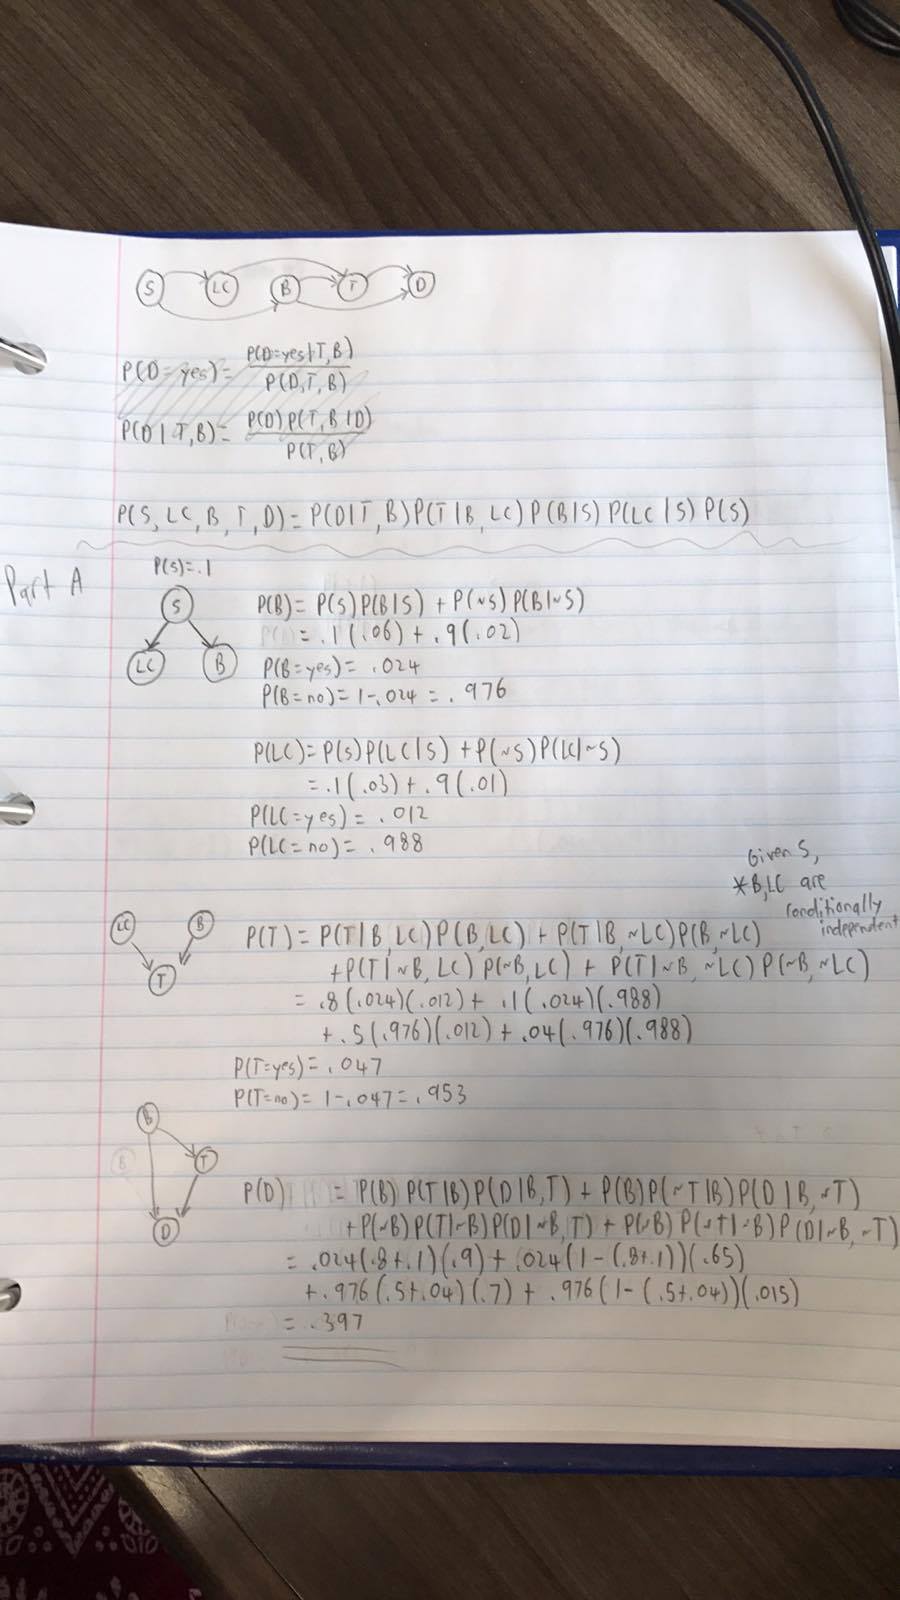 S LC B T D
P(D=yes)= P(D=yes|T,B)
P(D,T,B)
P(D|T,B)= P(D)P(T,B|D)
P(T,B)
P(S,LC,B,T,D)= P(D|T,B)P(T|B,LC)P(B|S)P(LC|S)P(S)
Part A
P(S)=.1
S
LC B
P(B)= P(S)P(B|S) + P(~S)P(B|~S)
= .1(.06) + .9(.02)
P(B=yes)= .024
P(B=no)=1-.024= .976
P(LC)= P(S)P(LC|S) + P(~S)P(LC|~S)
= .1(.03)+.9(.01)
P(LC=yes)= .012
P(LC=no)= .988
Given S,
*B,LC are
conditionally
independent
LC B
T
P(T)= P(T|B,LC)P(B,LC) + P(T|B,~LC)P(B,~LC)
+P(T|~B,LC)P(~B,LC) + P(T|~B,~LC)P(~B,~LC)
= .8(.024)(.012)+ .1(.024)(.988)
+.5(.976)(.012)+.04(.976)(.988)
P(T=yes)=.047
P(T=no)= 1-.047=.953
B
T
D
P(D) = P(B)P(T|B)P(D|B,T)+P(B)P(~T|B)P(D|B,~T)
+P(~B)P(T|~B)P(D|~B,T)+P(~B)P(~T|~B)P(D|~B,~T)
= .024(.8+.1)(.9)+.024(1-(.8+.1))(.65)
+.976(.5+.04)(.7)+.976(1-(.5+.04))(.015)
= .397